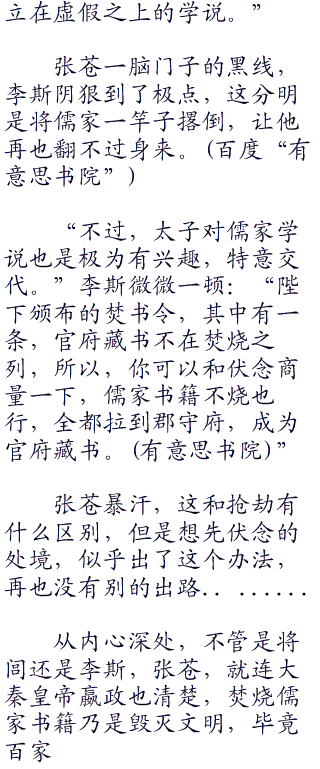 立在虚假之上的学说。”
张苍一脑门子的黑线，
李斯阴狠到了极点，这分明
是将儒家一竿子撂倒，让他
再也翻不过身来。(百度“有
意思书院”)
“不过，太子对儒家学
说也是极为有兴趣，特意交
代。”李斯微微一顿：“陛
下颁布的焚书令，其中有一
条，官府藏书不在焚烧之
列，所以，你可以和伏念商
量一下，儒家书籍不烧也
行，全都拉到郡守府，成为
官府藏书。(有意思书院)”
张苍暴汗，这和抢劫有
什么区别，但是想先伏念的
处境，似乎出了这个办法，
再也没有别的出路.. ......
从内心深处，不管是将
闾还是李斯，张苍，就连大
秦皇帝嬴政也清楚，焚烧儒
家书籍乃是毁灭文明，毕竟
百家